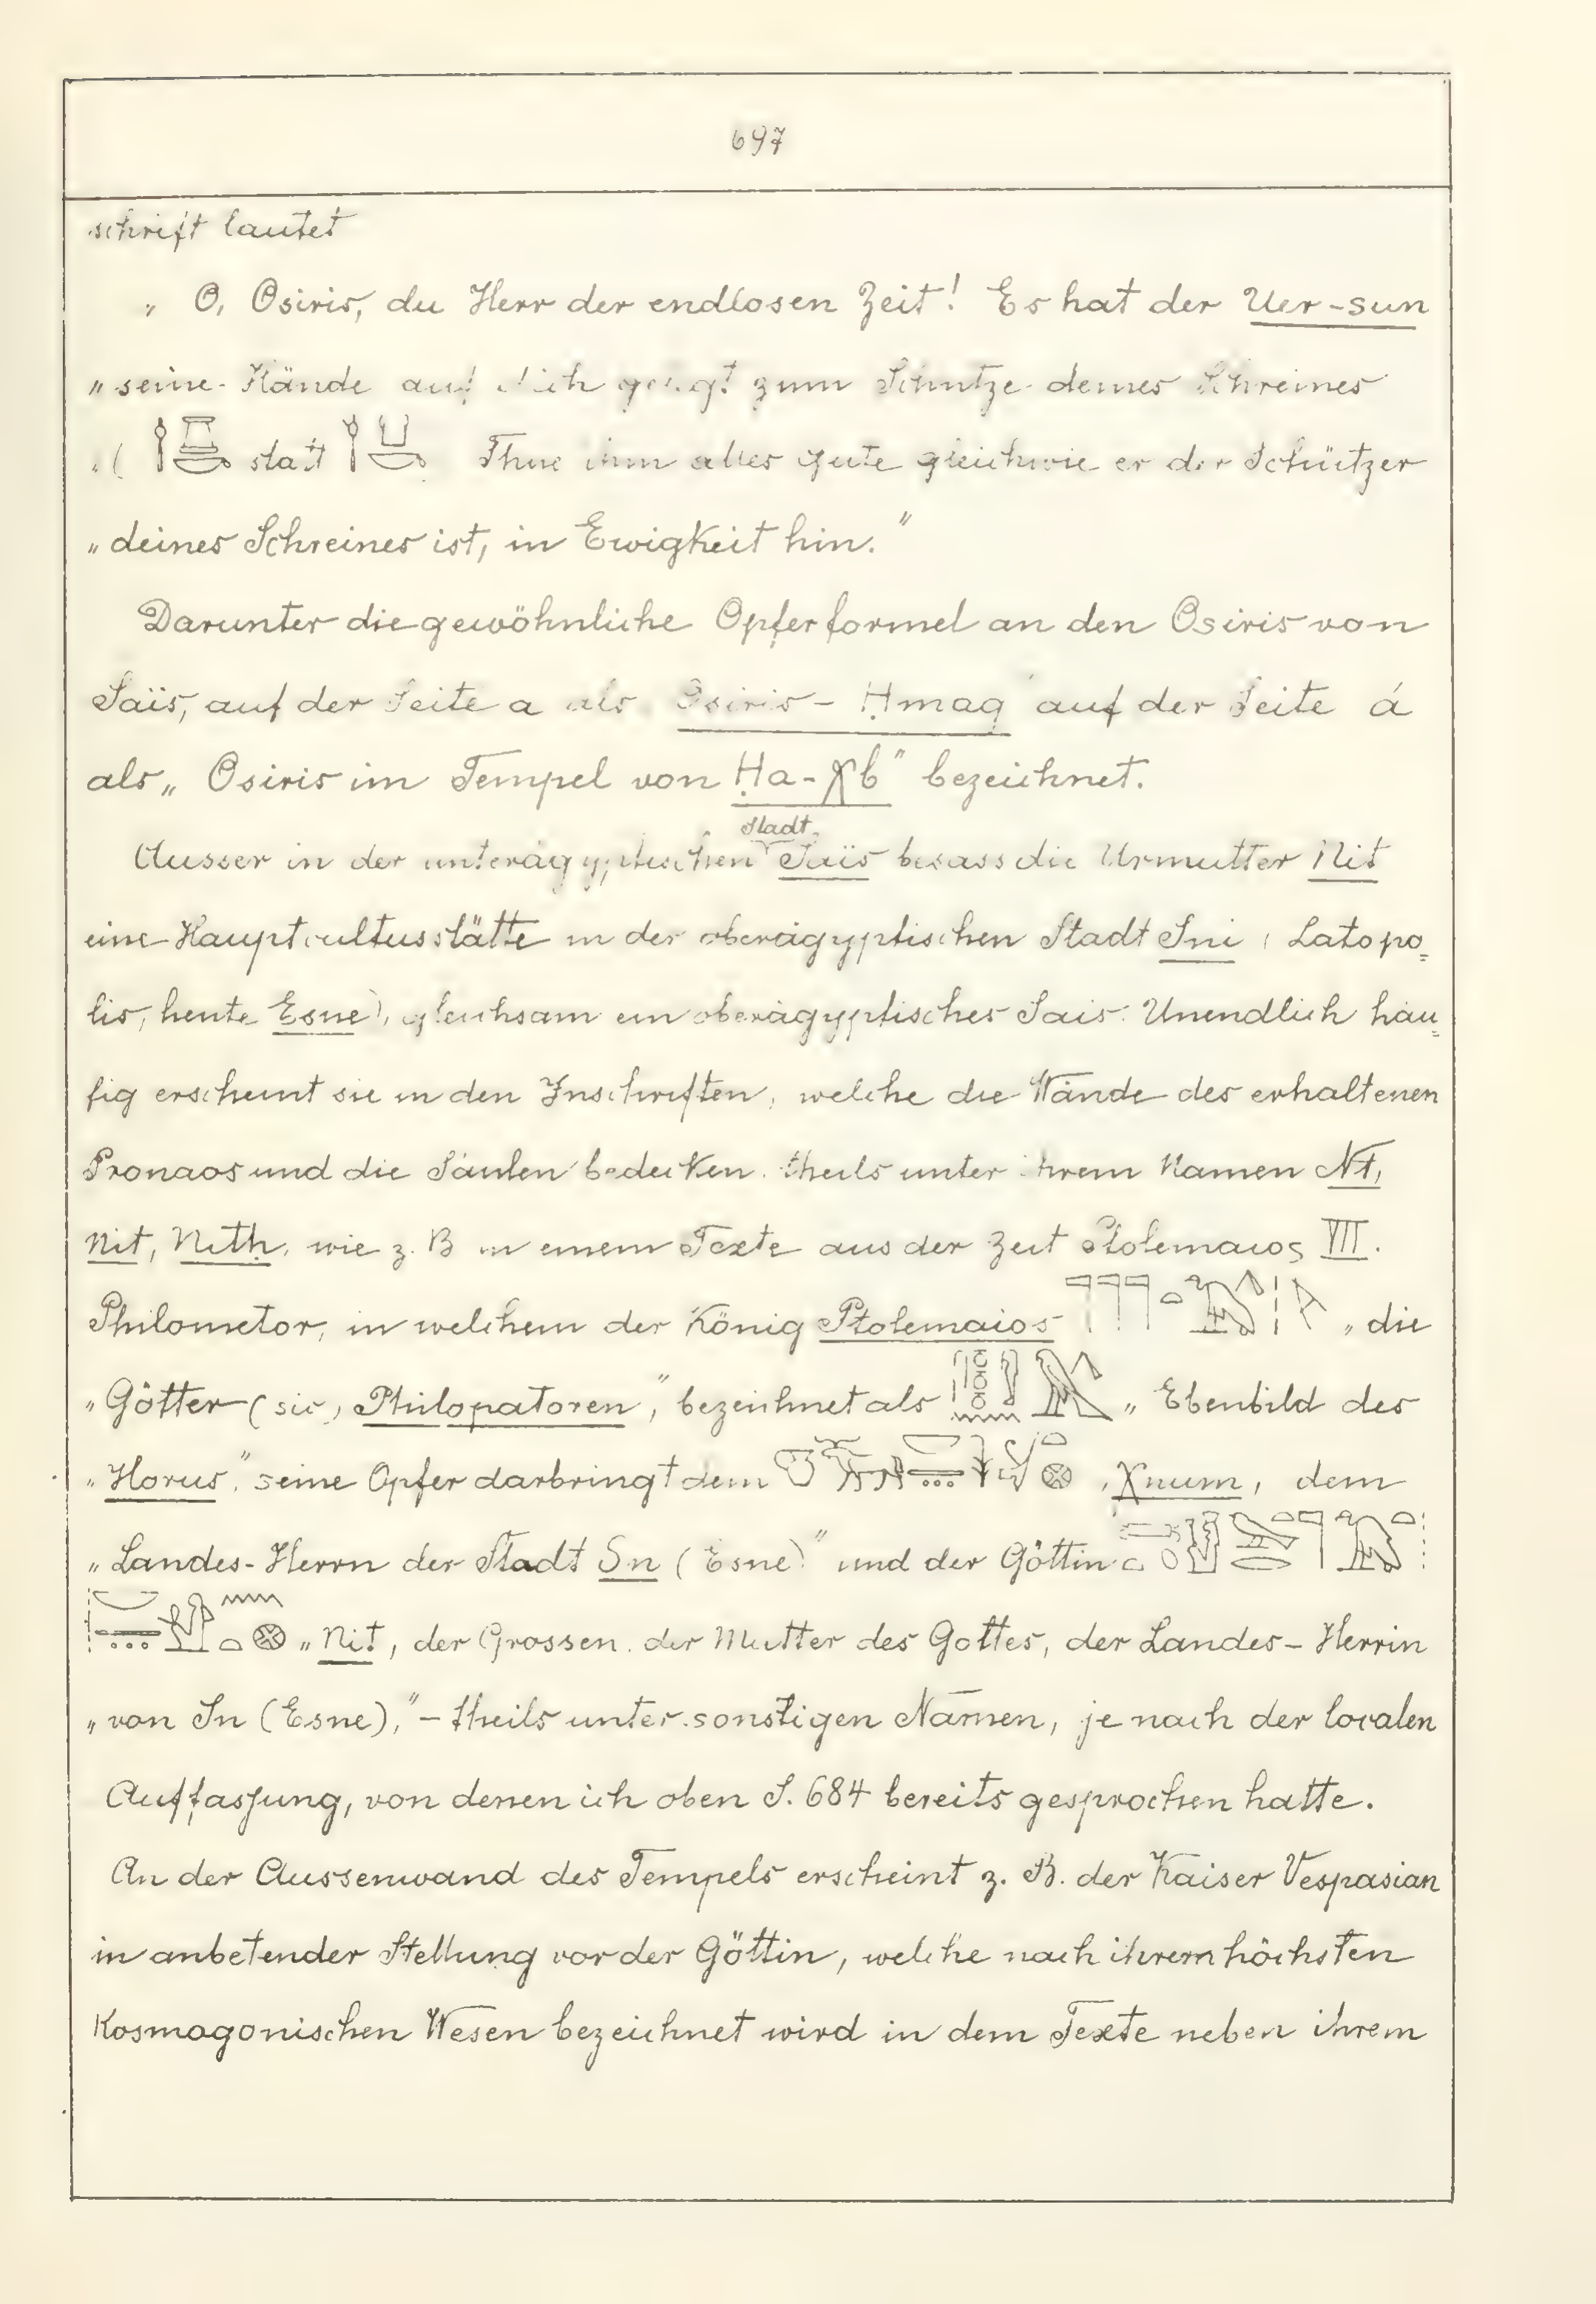 697
schrift lautet
„ O, Osiris, du Herr der endlosen Zeit! Es hat der Uer-sun
„ seine Hände auf dich gelegt zum Schutze deines Schreines
„( statt Thue ihm alles gute gleichwie er der Schützer
„ deines Schreines ist, in Ewigkeit hin.“
Darunter die gewöhnliche Opferformel an den Osiris von
Saïs, auf der Seite a als Osiris - Ḥmag auf der Seite á
als „ Osiris im Tempel von Ḥa-χb“ bezeichnet.
Stadt
Ausser in der unterägyptischen Saïs besass die Urmutter Nit
eine Hauptcultusstätte in der oberägyptischen Stadt Sni (Latopo=
lis, heute Esne), gleichsam ein oberägyptisches Sais. Unendlich häu=
fig erscheint sie in den Inschriften, welche die Wände des erhaltenen
Pronaos und die Säulen bedecken, theils unter ihrem Namen Nt,
Nit, Neth, wie z. B in einem Texte aus der Zeit Ptolemaios VII.
Philometor, in welchem der König Ptolemaios „ die
„ Götter (sic) Philopatoren“, bezeichnet als „ Ebenbild des
„ Horus“, seine Opfer darbringt dem „ Xnum, dem
„ Landes-Herrn der Stadt Sn (Esne)“ und der Göttin
„ Nit, der Grossen, der Mutter des Gottes, der Landes-Herrin
„ von Sn (Esne),“ – theils unter sonstigen Namen, je nach der localen
Auffassung, von denen ich oben S. 684 bereits gesprochen hatte.
An der Aussenwand des Tempels erscheint z. B. der Kaiser Vespasian
in anbetender Stellung vor der Göttin, welche nach ihrem höchsten
Kosmogonischen Wesen bezeichnet wird in dem Texte neben ihrem